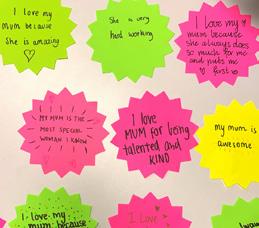 I love my
mum because
She is amazing
She is a very
hard working
I love my
mum because
she always does
so much for me
and puts me
first
MY MUM IS THE
MOST SPECIAL
WOMAN I KNOW
I love
MUM for being
talented and
KIND
my mum is
awesome
I love my
mum because
I Love